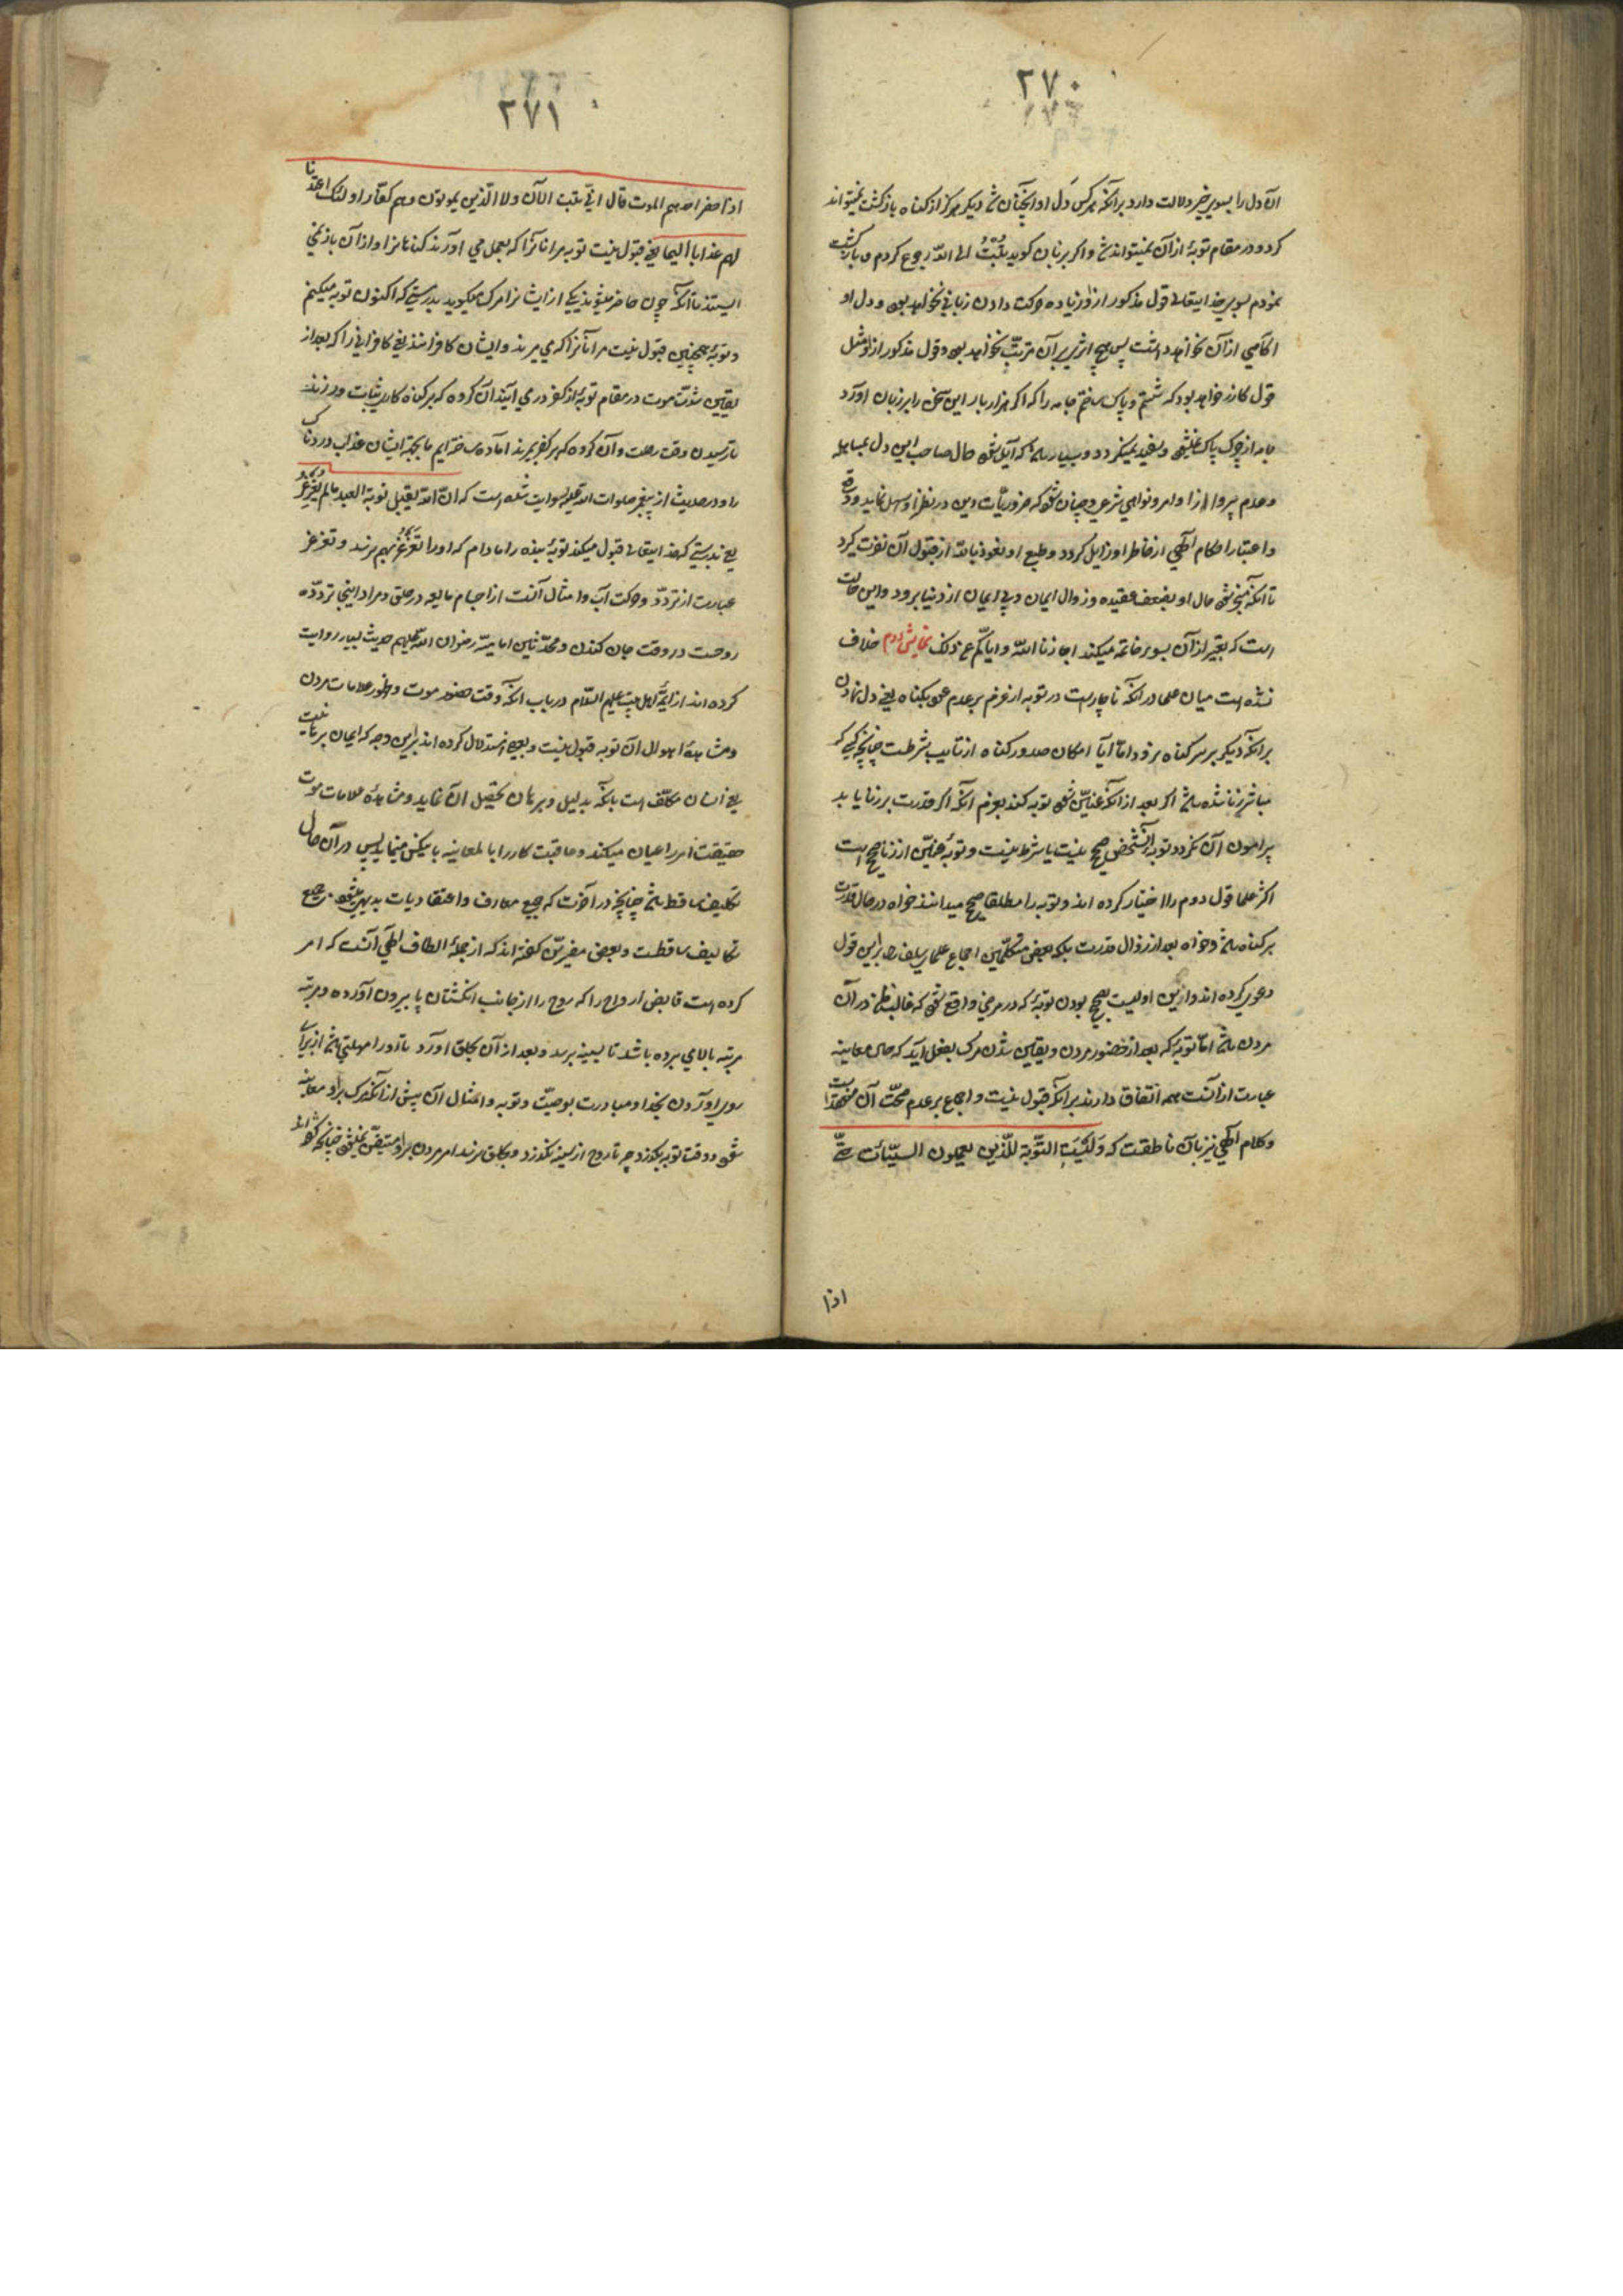 ۲۷۰
آن دل را بسوی خیر دلالت دارد بر آنکه هر کس دل او اینچنان شد دیگر هرگز از گناه بازگشت نمیتواند
کرد و در مقام توبهٔ از آن نمیتواند شد و اگر بزبان گوید تُبْتُ الی اللّه رجوع کردم و بازگشت
نمودم بسوی خدایتعالی قول مذکور ازو زیاده حرکت دادن زبانی نخواهد بود و دل او
آگاهی از آن نخواهد داشت پس هیچ اثری بر آن مترتّب نخواهد بود و قول مذکور ازو مثل
قول گازر خواهد بود که شستم و پاک ساختم جامه را که اگر هزار بار این سخن را بر زبان آورد
جامه از چرک پاک نمیشود و سفید نمیگردد و بسیار باشد که آیل شود حال صاحب این دل بمساهله
و عدم پروا از اوامر و نواهی شرعی و چنان شود که ضروریّات دین در نظر او سهل نماید و وقع
و اعتبار احکام الٓهی از خاطر او زایل گردد و طبع او نعوذ باللّه از قبول آن نفرت گیرد
تا آنکه منجر شود حال او بضعف عقیده و زوال ایمان و بی ایمان از دنیا برود و این حالت
است که تعبیر از آن بسوء خاتمه میکنند اجارنا اللّه و ایاکم عن ذلک نمایش دوم خلاف
نشده است میان علما در آنکه ناچار است در توبه از عزم بر عدم عود بگناه یعنی دل نهادن
بر آنکه دیگر بر سر گناه نرود امّا آیا امکان صدور گناه از تایب شرطست چنانچه کسی که
مباشر زنا شده باشد اگر بعد از آنکه عنّین شود توبه کند بعزم آنکه اگر قدرت بر زنا یابد
پیرامون آن نگردد توبهٔ آنشخص صحیح نیست یا شرط نیست و توبهٔ عنّین از زنا صحیح است
اکثر علما قول دوم را اختیار کرده اند و توبه را مطلقا صحیح میدانند خواه در حال قدرت
بر گناه باشد و خواه بعد از زوال قدرت بلکه بعضی متکلّمین اجماع علمای سلف را بر این قول
دعوی کرده اند و ازین اولیست صحیح بودن توبهٔ که در مرضی واقع شود که غالب ظن در آن
مردن باشد امّا توبهٔ که بعد از حضور مردن و یقین شدن مرگ بفعل آید که حال معاینه
عبارت از آنست همه اتّفاق دارند بر آنکه قبول نیست و اجماع بر عدم صحّت آن منعقد است
و کلام الٓهی نیز بآن ناطقست که وَلَیْسَتِ التَّوْبَة للّذین یعملون السیّئات حتّی
اذا
۲۷۱
اذا حضر احدهم الموت قال انّی تبت الآن ولا الّذین یموتون وهم کفّار اولئک اعتدنا
لهم عذابا الیما یعنی قبول نیست توبه مر آنانرا که بعمل می آورند گناهانرا و از آن باز نمی
ایستند تا آنکه چون حاضر میشود یکی از ایشانرا مرگ میگوید بدرستی که اکنون توبه میکنم
و توبهٔ همچنین قبول نیست مر آنانرا که می میرند و ایشان کافرانند یعنی کافرانی را که بعد از
یقین شدن موت در مقام توبهٔ از کفر در می آیند آن گروه که بر گناه کاری ثبات ورزند
تا رسیدن وقت رحلت و آن گروه که بر کفر بمیرند آماده ساخته ایم ما بجهة ایشان عذاب دردناک
را و در حدیث از پیغمبر صلوات اللّه علیه روایت شده است که انّ اللّه یقبل توبة العبد ما لم یُغَرْغِر
یعنی بدرستی که خدایتعالی قبول میکند توبهٔ بنده را مادام که او را تَغَرْغُر بهم نرسد و تغرغر
عبارت از تردّد و حرکت آب و امثال آنست از اجسام مایعه در حلق و مراد اینجا تردّد
روحست در وقت جان کندن و محدّثین امامیّه رضوان اللّه علیهم حدیث بسیار روایت
کرده اند از ائمهٔ اهل بیت علیهم السّلام در باب آنکه وقت حضور موت و ظهور علامات مردن
و مشاهدهٔ اهوال آن توبه قبول نیست و بعضی استدلال کرده اند بر این وجه که ایمان برهانیست
یعنی انسان مکلّف است بآنکه بدلیل و برهان تحصیل آن نماید و مشاهدهٔ علامات موت
حقیقت امر را عیان میکند و عاقبت کار را بالمعاینه بایشکس مینماید پس در آن حال
تکلیف ساقط باشد چنانچه در آخرت که جمیع معارف و اعتقادیات بدیهی میشود جمیع
تکالیف ساقطست و بعضی مفسّرین گفته اند که از جملهٔ الطاف الٓهی آنست که امر
کرده است قابض ارواح را که روح را از جانب انگشتان پا بیرون آورده و مرتبه
مرتبه بالا می برده باشد تا بسینه برسد و بعد از آن بحلق آورد تا او را مهلتی باشد از برای
روی آوردن بخدا و مبادرت بوصیّت و توبه و امثال آن پیش از آنکه مرگ بر او معاینه
شود و وقت توبه بگذرد چه تا روح از سینه نگذرد و بحلق نرسد امر مردن بر او متیقّن نمیشود چنانچه گفته اند